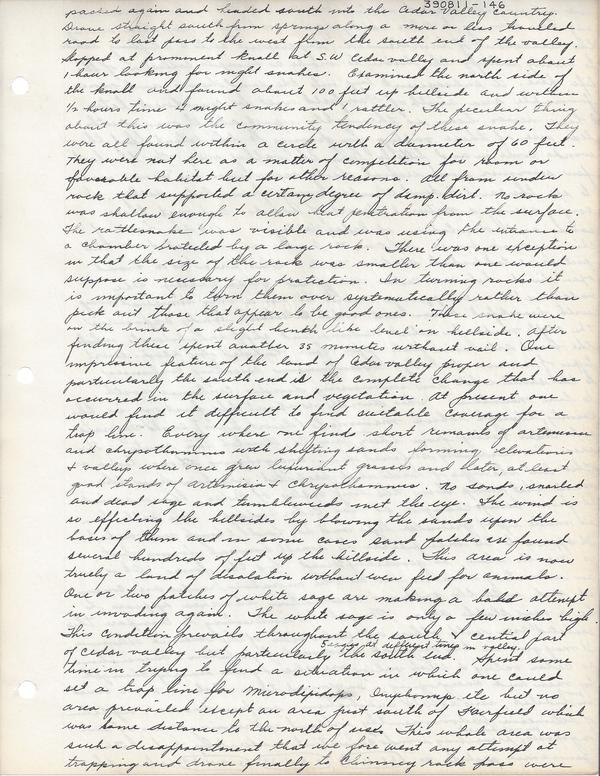 390811-146
packed again and headed south into the Cedar Valley country.
Drove straight south from springs along a more or less traveled
road to last pass to the west from the south end of the valley.
Stopped at prominent knall at S.W Cedar valley and spent about
1 hour looking for night snakes. Examined the north side of
the knall and found about 100 feet up hillside and within
1/2 hours time 4 night snakes and 1 rattler. The peculiar thing
about this was the community tendency of these snake. They
were all found within a circle with a diameter of 60 feet.
They were not here as a matter of competition for room or
favorable habitat but for other reasons. All from under
rock that supported a certany degree of damp dirt. No rock
was shallow enough to allow heat penetration from the surface.
The rattlesnake was visible and was using the entrance to
a chamber by a large rock. There was one exception
in that the size of the rock was smaller than one would
suppose is necessary for protection. In turning rocks it
is important to turn them over systematically rather than
pick out those that appear to be good ones. These snake were
on the brink of a slight bench like level on hillside. After
finding these spent another 35 minutes without vail. One
impressive feature of the land of Cedar valley proper and
particularly the south end is the complete change that has
occurred in the surface and vegetation. At present one
would find it difficult to find suitable coverage for a
trap line. Every where one finds short remants of artemesia
and chrysothamnus with shifting sands forming elevations
& valleys where once grew luxuriant grasses and later, at least
good stands of artemisia & Chrysothamnus. No sands, snarled
and dead sage and tumbleweeds met the eye. The wind is
so effecting the hillsides by blowing the sands upon the
bases of them and in some cases sand patches are found
several hundreds of feet up the hillside. This area is now
truely a land of disolation without even feed for animals.
One or two patches of white sage are making a bald attempt
in invading again. The white sage is only a few inches high.
This condition prevails throughout the south & central part
of Cedar valley but particularly the south end. Spent some
at different times in valley.
time in trying to find a situation in which one could
set a trap line for Microdipidops, etc but no
area prevailed except an area just south of Fairfield which
was some distance to the north of us. This whole area was
such a disappointment that we fore went any attempt at
trapping and drove finally to Chimney rock pass were